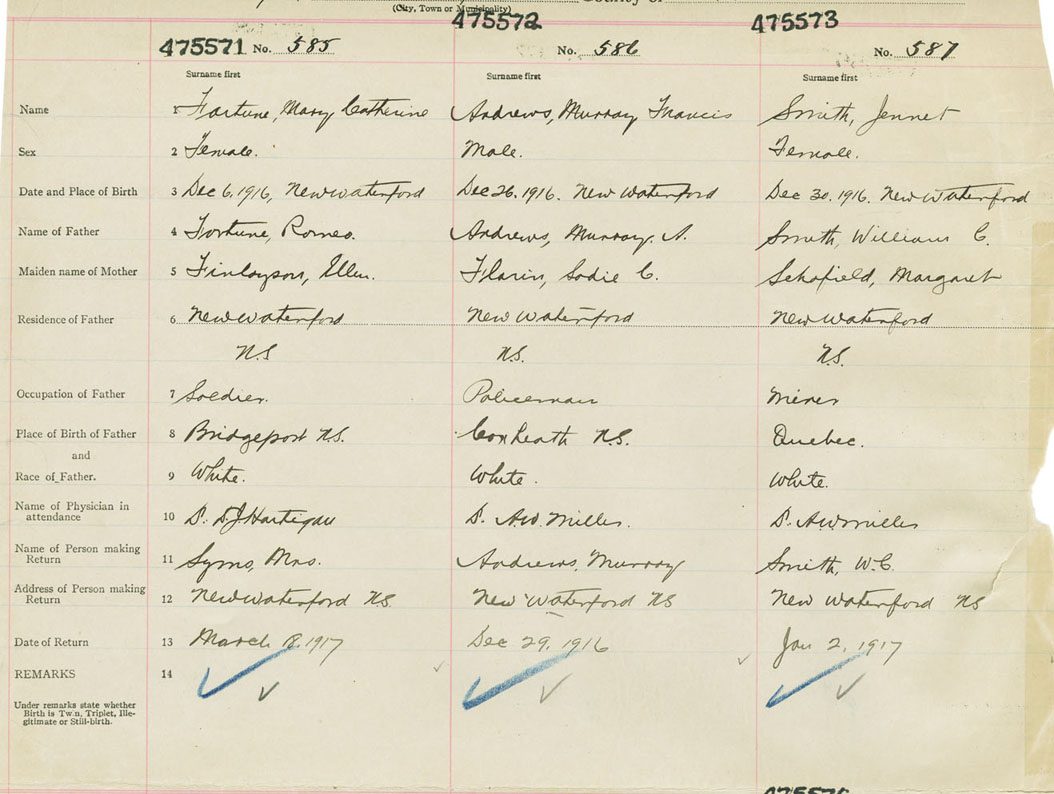 (City, Town or Municipality)
475571 No. 585
475572 No. 586
475573 No. 587
Surname first Surname first Surname first
Name 1 Fortune, Mary Catherine Andrews, Murray Francis Smith, Jennet
Sex 2 Female. Male. Female.
Date and Place of Birth 3 Dec 6, 1916, New Waterford Dec 26. 1916. New Waterford Dec 30. 1916. New Waterford
Name of Father 4 Fortune, Romeo. Andrews, Murray. A. Smith, William C.
Maiden name of Mother 5 Finlayson, Ellen. Sadie C. Schofield, Margaret
Residence of Father 6 New Waterford New Waterford New Waterford
N.S N.S. N.S.
Occupation of Father 7 Soldier. Policeman Miner
Place of Birth of Father 8 Bridgeport N.S. Coxheath N.S. Quebec.
and
Race of Father. 9 White. White. White.
Name of Physician in
attendance 10 D. D.J Hartigan D. A.W. Miller. D. A W Miller
Name of Person making
Return 11 Syms, Mrs. Andrews, Murray Smith, W.C.
Address of Person making
Return 12 New Waterford N.S. New Waterford NS New Waterford NS
Date of Return 13 March 1917 Dec 29, 1916 Jan 2, 1917
REMARKS 14
Under remarks state whether
Birth is Twin, Triplet, Ille-
gitimate or Still-birth.